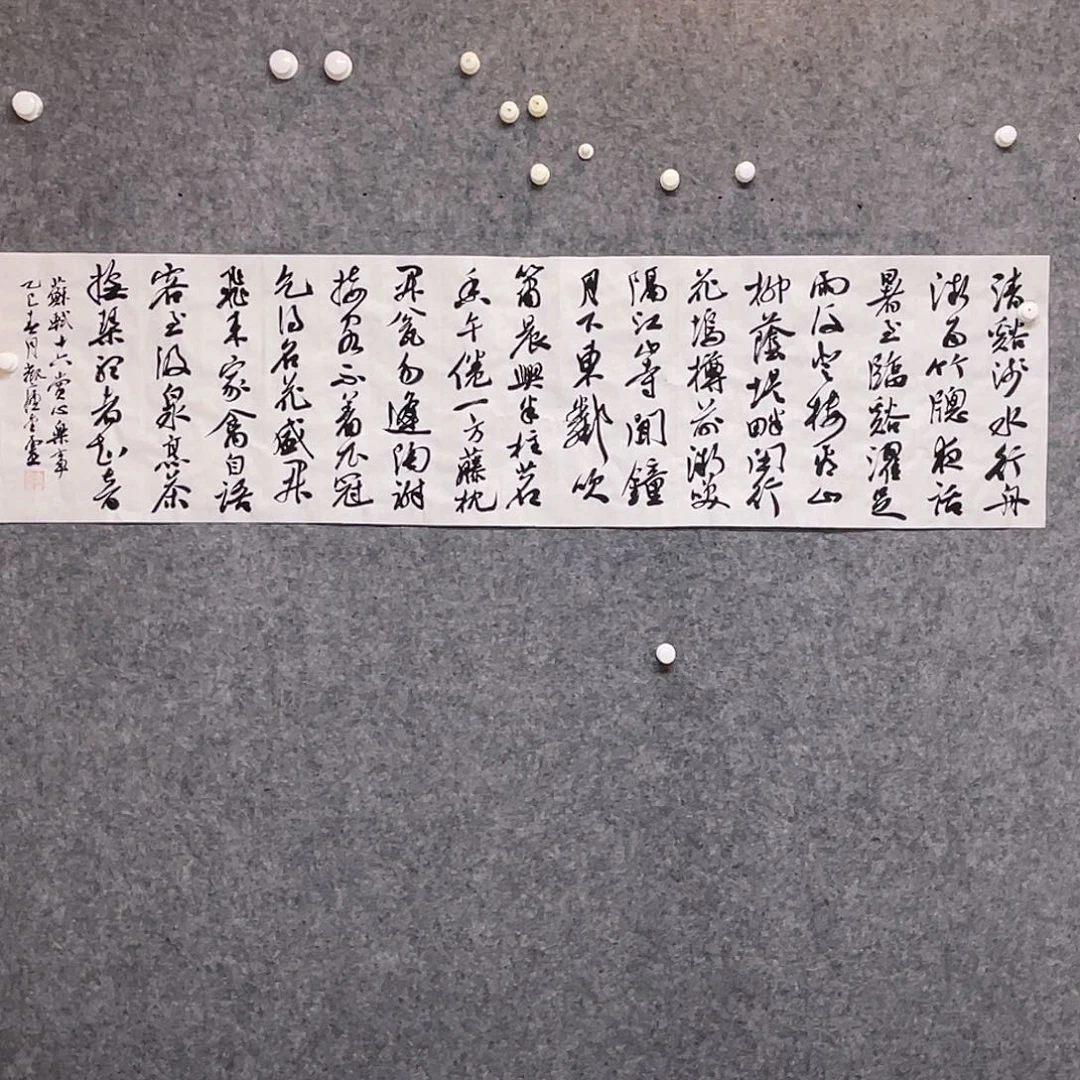 清谿淺水行舟
微雨竹牕夜話
暑至臨谿濯足
雨後登樓看山
柳蔭堤畔閒行
花塢樽前微笑
隔江山寺聞鐘
月下東鄰吹
簫晨興半柱茗
香午倦一方藤枕
開瓮勿逢陶謝
接客不著衣冠
乞得名花盛開
飛來家禽自語
客至汲泉烹茶
撫琴聽者知音
蘇軾十六賞心樂事
乙巳春月